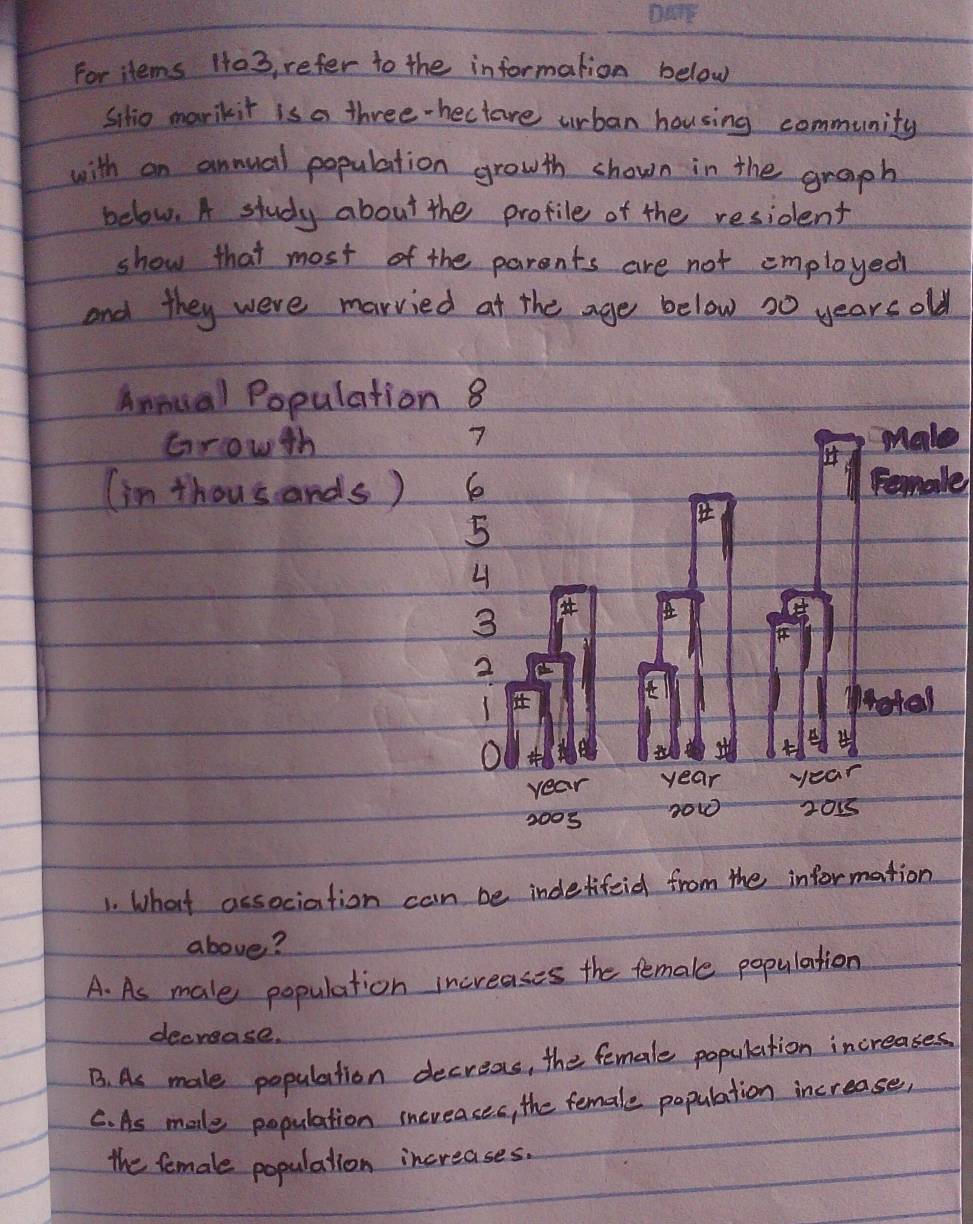 DATE
For items 1to3, refer to the information below
Sitio marikit is a three-hectare urban housing community
with an annual population growth shown in the graph
below. A study about the profile of the resident
show that most of the parents are not employed
and they were married at the age below 20 years old
Annual Population 8
Growth 7 Male
(in thousands) 6 Female
5
4
3
2
1 total
0
year year year
2005 2010 2015
1. What association can be indetifeid from the information
above?
A. As male population increases the female population
decrease.
B. As male population decreas, the female population increases.
C. As male population increases, the female population increase,
the female population increases.